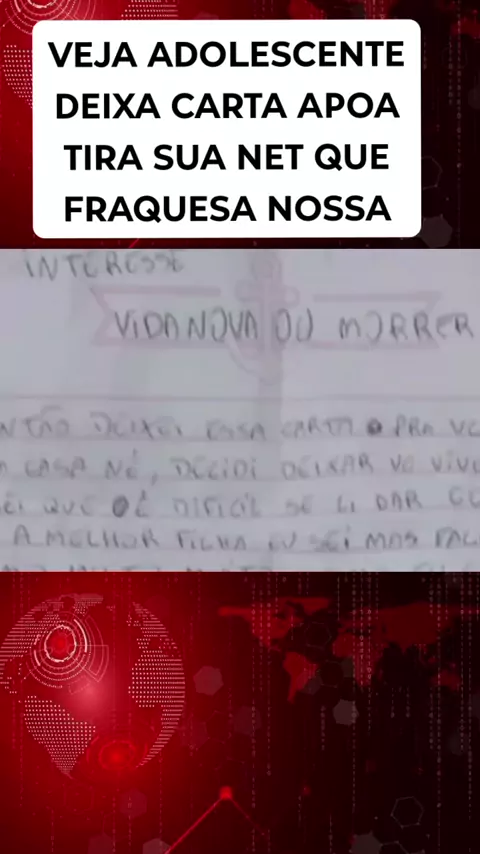 VEJA ADOLESCENTE
DEIXA CARTA APOA
TIRA SUA NET QUE
FRAQUESA NOSSA
INTERESSE
VIDA NOVA OU MORRER
DEIXEI ESSA CARTA PRA
CASA NÉ, DECIDI DEIXAR
QUE É DIFICIL SE LI DAR
A MELHOR FILHA EU SEI MAS